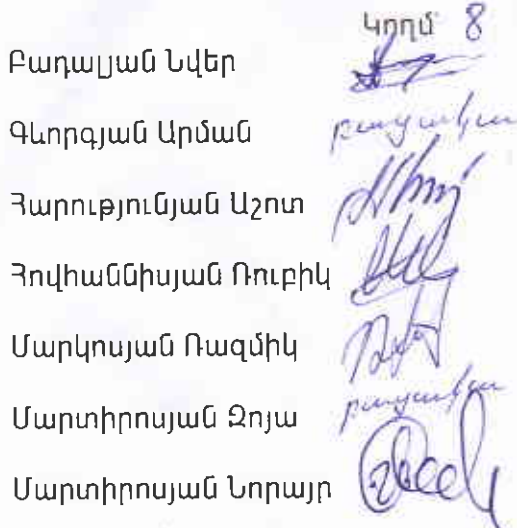 Կողմ՝ 8
Բադալյան Նվեր
Գևորգյան Արման բացակա
Հարությունյան Աշոտ
Հովհաննիսյան Ռուբիկ
Մարկոսյան Ռազմիկ
Մարտիրոսյան Զոյա բացակա
Մարտիրոսյան Նորայր